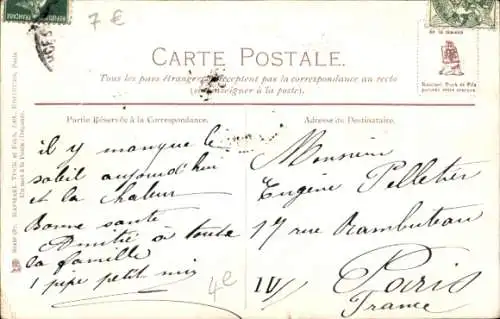 7 €
CARTE POSTALE.
Tous les pays étrangers n'acceptent pas la correspondance au recto
(se renseigner à la poste).
Partie Réservée à la Correspondance.
Adresse du Destinataire.
il y manque le
soleil aujourd'hui
et la chaleur
Bonne santé
Amitié à toute
la famille
1 pipe petit
4€
Monsieur
Eugène Pelletier
17 rue Rambuteau
IV/ Paris
France
de la maison
Raphael Tuck et Fils